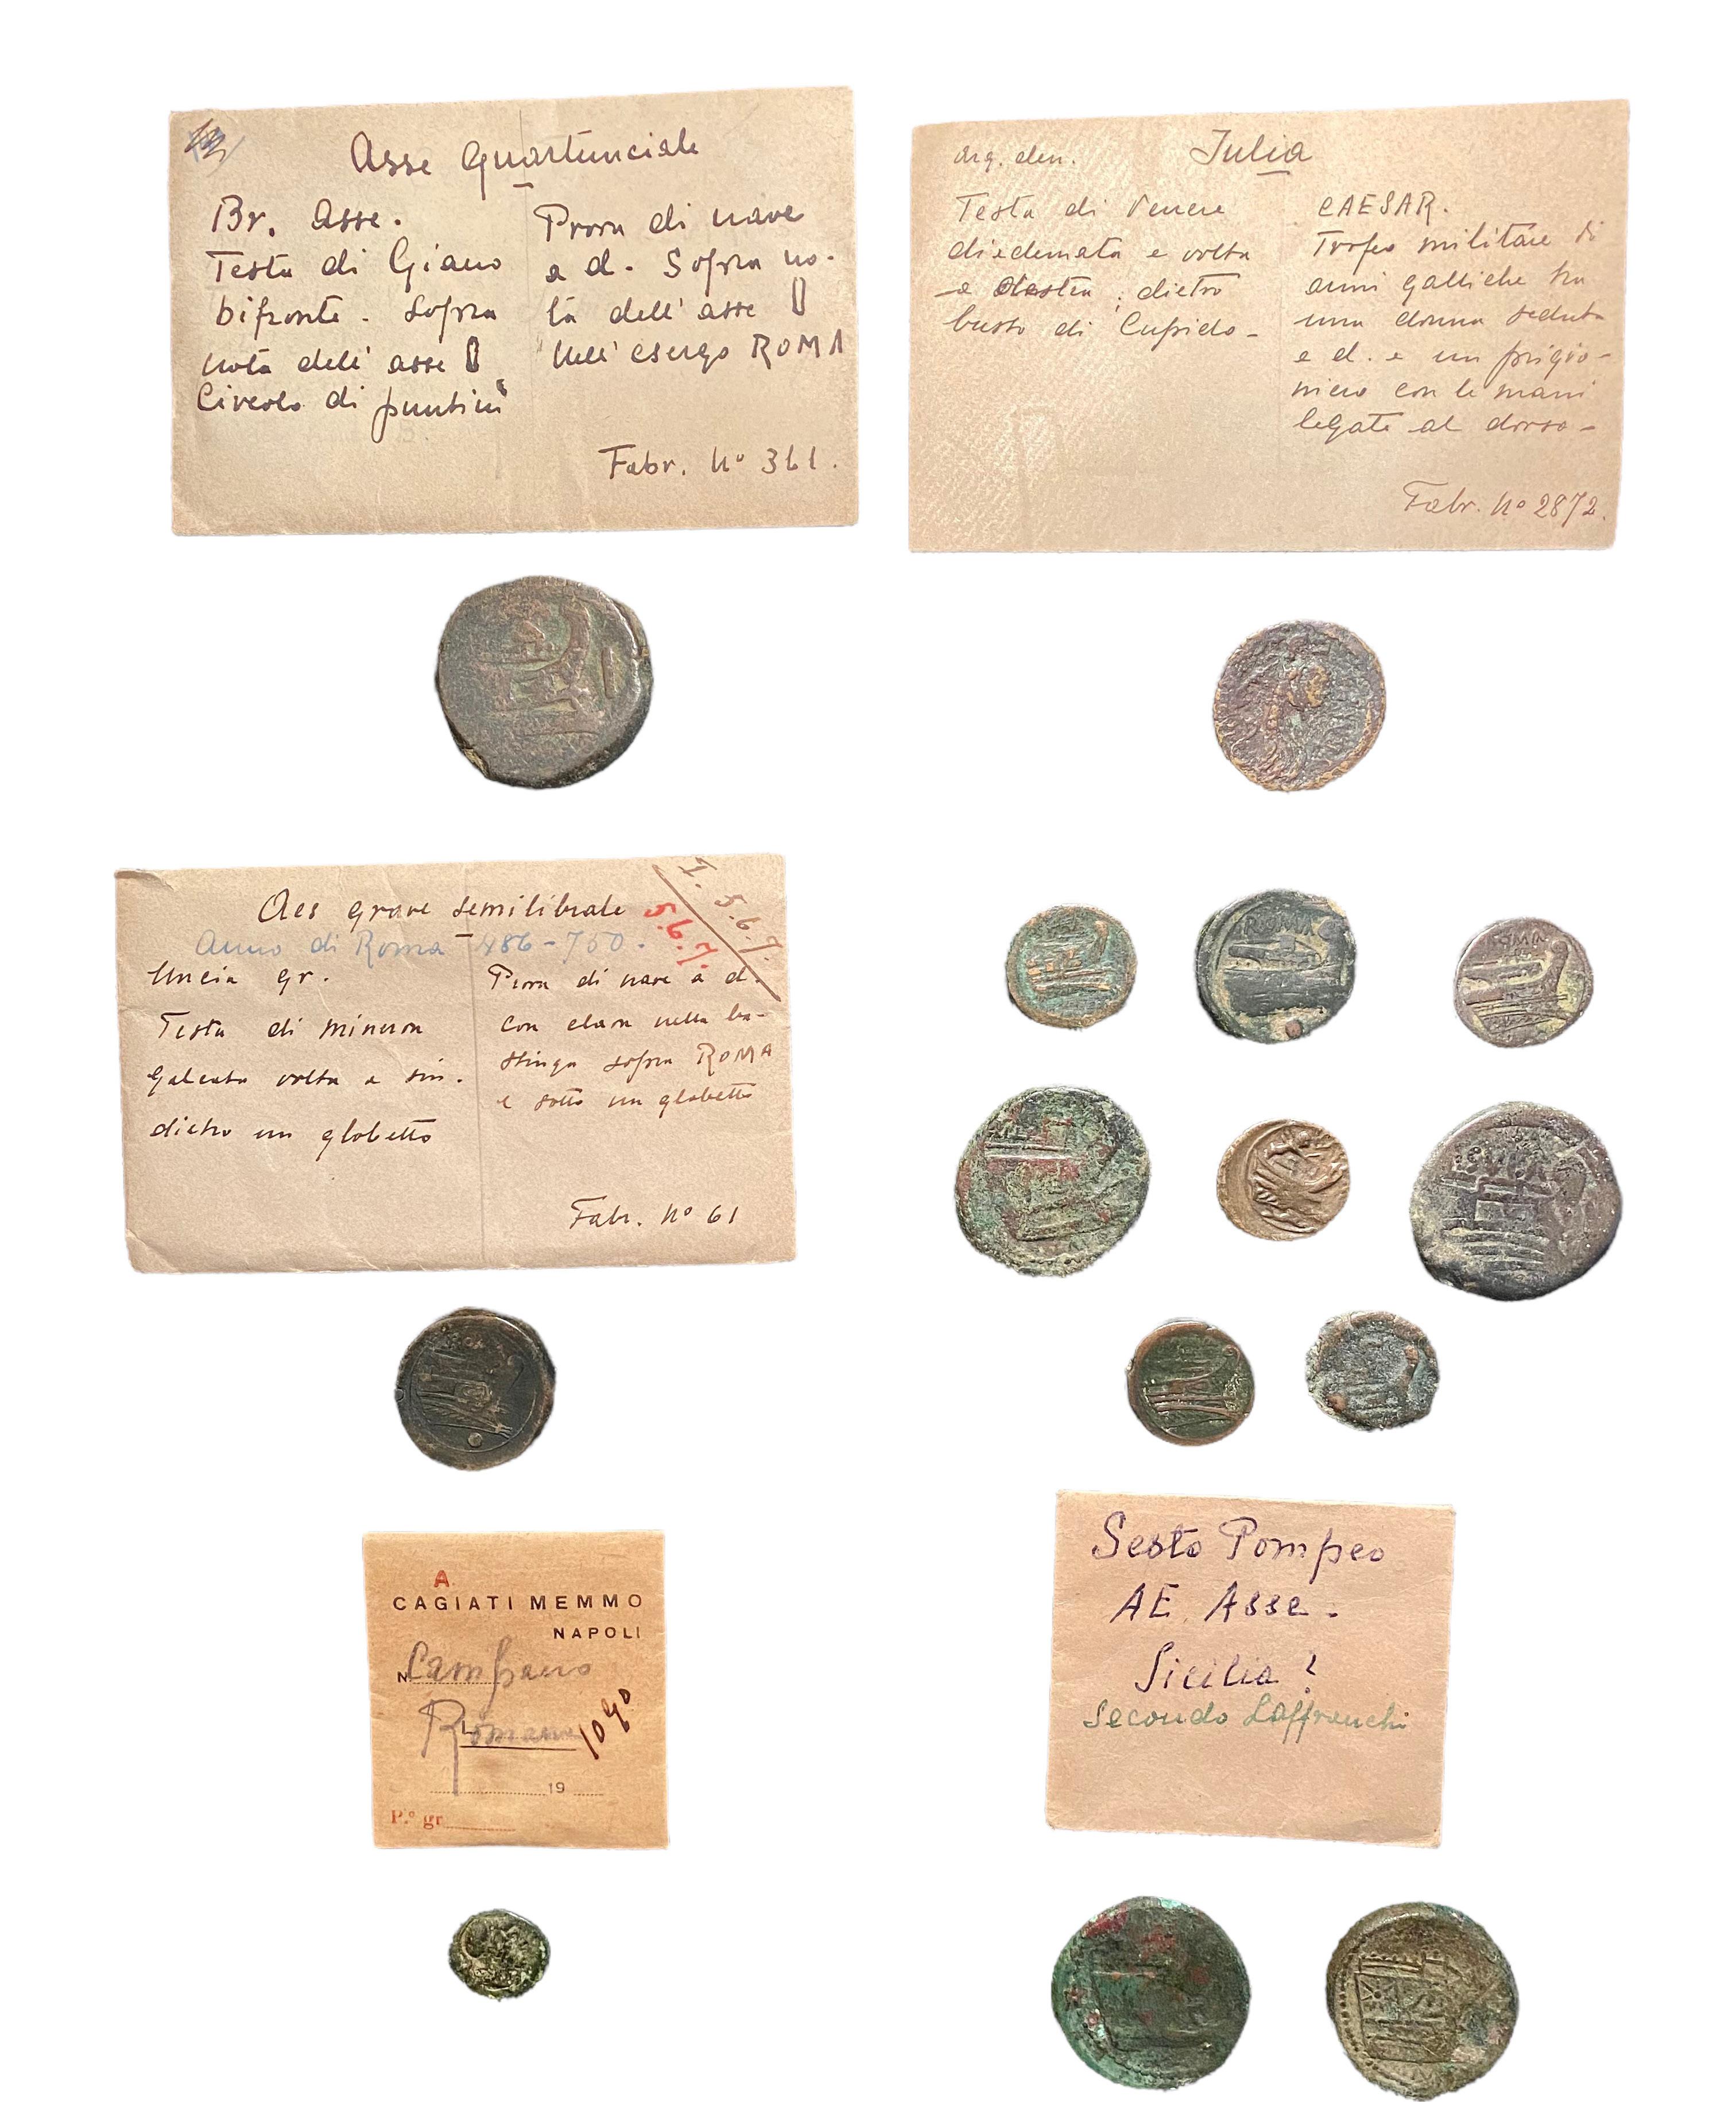 Asse Quartunciale
Br. Asse.
Testa di Giano
bifronte. Sopra
nota dell' asse
Circolo di puntini
Prora di nave
a d. Sopra no-
ta dell' asse
Nell' esergo ROMA
Fabr. N° 361.
Arg. den.
Iulia
Testa di Venere
diademata e volta
a destra; dietro
busto di Cupido-
CAESAR.
Trofeo militare di
armi galliche tra
una donna seduta
a d. e un prigio-
niero con le mani
legate al dorso-
Fabr. N° 2872.
Aes grave semilibrale
Anno di Roma 486-700.
1. 5.6.7.
5.6.7.
Uncia gr.
Testa di Minerva
galeata volta a sin.
dietro un globetto
Prora di nave a d.
con clava nella
sopra ROMA
e sotto un globetto
Fabr. N° 61
ROMA
A
CAGIATI MEMMO
NAPOLI
N Campano
Romana
19
P.° gr.
Sesto Pompeo
AE. Asse.
Sicilia?
Secondo Laffranchi